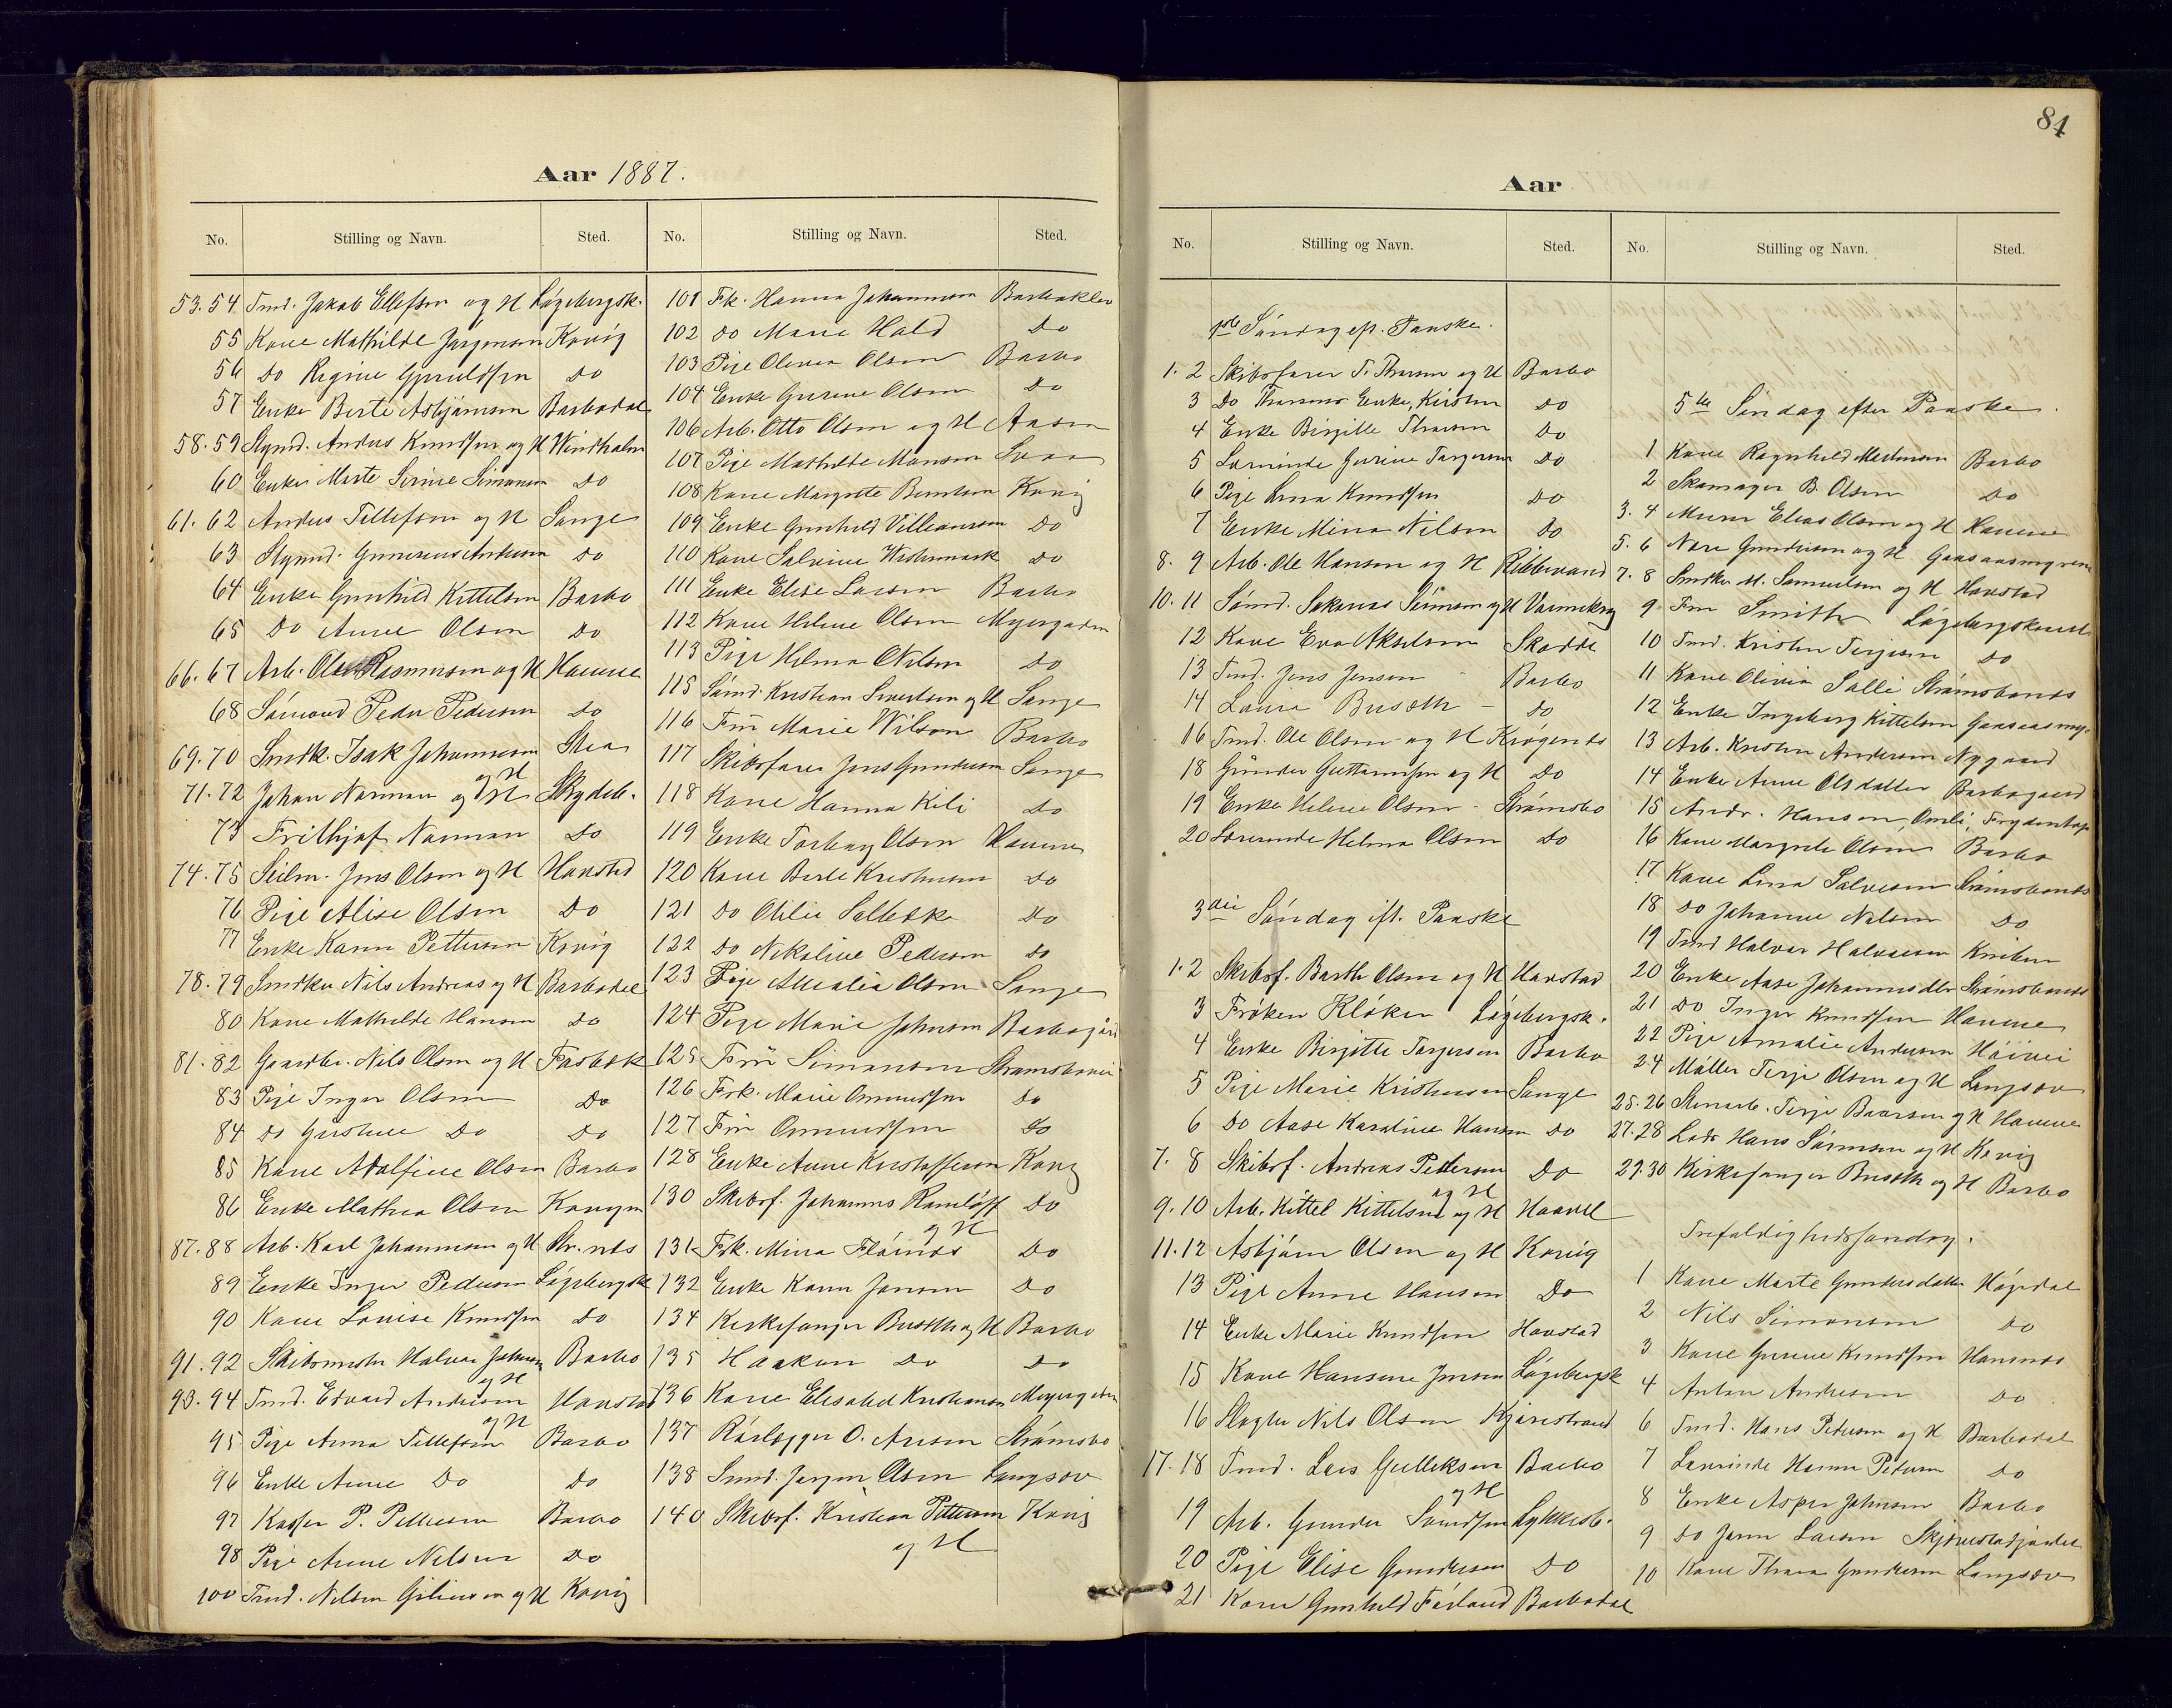 Aar 1887.
No. Stilling og Navn. Sted.
53.54 Tmd. Jakob Ellefsen og H Løgebergsk.
55 Kone Mathilde Jørgensen Kovig
56 Do Regine Do
57 Enke Berte Asbjørnsen Barbodal
58.59 Styrmd. Anders Knudsen og H Windholm
60 Enke Marte Serine Simonsen Do
61.62 Anders Tellefsen og H Sange
63 Styrmd. Andersen Do
64 Enke Gunhild Kittelsen Barbo
65 Do Anne Olsen Do
66.67 Arb. Ole Rasmussen og H Havene
68 Sømand Peder Pedersen Do
69.70 Smedk. Isak Johannesen
og H
71.72 Johan Norman og H Skydeb.
73 Frithjof Norman Do
74.75 Seilm. Jens Olsen og H Havstad
76 Pige Alise Olsen Do
77 Enke Karen Pettersen Kovig
78.79 Smedk. Nils Andreas og H Barbodal
80 Kone Mathilde Hansen Do
81.82 Gaardbr. Nils Olsen og H Frobæk
83 Pige Inger Olsen Do
84 Do Do Do
85 Kone Adolfine Olsen Barbo
86 Enke Mathea Olsen
87.88 Arb. Karl Johannesen og H
89 Enke Inger Pedersen Løgebergsk
90 Kone Louise Knudsen Do
91.92 Halvor Johnsen Barbo
og H
93.94 Tmd. Edvard Andersen Havstad
og H
95 Pige Anna Tellefsen Barbo
96 Enke Anne Do Do
97 P. Pettersen Barbo
98 Pige Anne Nilsen Do
100 Tmd. Nilsen og H Kovig
No. Stilling og Navn. Sted.
101 Fk. Hanna Johannesen Barboklev
102 Do Marie Hald Do
103 Pige Olevia Olsen Barbo
104 Enke Gurine Olsen Do
106 Arb. Otto Olsen og H Aasen
107 Pige Mathilde Monsen
108 Kone Margrete Berntsen Kovig
109 Enke Gunhild Villiamsen Do
110 Kone Salvine Westermark Do
111 Enke Elise Larsen Barbo
112 Kone Helene Olsen Myrgaden
113 Pige Helma Nilsen Do
115 Sømd. Kristian Sivertsen og H Sange
116 Frü Marie Wilson Barbo
117 Skibsfører Jens Gundersen Sange
118 Kone Hanna Kili Do
119 Enke Torborg Olsen Havene
120 Kone Berte Kristensen Do
121 Do Otilie Do
122 Do Nikoline Pedersen Do
123 Pige Amalia Olsen Sange
124 Pige Marie Johnsen Barbogård
125 Frü Simonsen
126 Frk. Marie Ommundsen Do
127 Frü Ommundsen Do
128 Enke Anne Kristoffersen Kovig
130 Skibsf. Johannes Ramløff Do
og H
131 Frk. Mina Do
132 Enke Karen Jensen Do
134 Kirkesanger Busoth og H Barbo
135 Haakon Do Do
136 Kone Elisabet Kristiansen Myrgaden
137 Rørlægger O. Aresen Strømsbo
138 Smd. Jørgen Olsen Langsæv
140 Skibsf. Kristian Pettersen Kovig
og H
84
Aar
No. Stilling og Navn. Sted.
1ste Søndag ef. Paaske.
1.2 Skibsfører T. Thorsen og H Barbo
3 Do Thorsens Enke, Kirsten Do
4 Enke Birgitte Thorsen Do
5 Lærerinde Gurine Torgersen Do
6 Pige Lina Knudsen Do
7 Enke Mina Nilsen Do
8.9 Arb. Ole Hansen og H
10.11 Sømd. Sakarias Simonsen og H
12 Kone Eva Akselsen
13 Tmd. Jens Jensen Barbo
14 Laura Busoth Do
16 Tmd. Ole Olsen og H Krøgenes
18 Gunder Guttormsen og H Do
19 Enke Helene Olsen Strømsbo
20 Lærerinde Helma Olsen Do
3die Søndag eft. Paaske
1.2 Skibsf. Barth Olsen og H Havstad
3 Frøken Kløker Løgebergsk.
4 Enke Birgitte Torgersen Barbo
5 Pige Marie Kristensen Sange
6 Do Aase Karoline Hansen Do
7.8 Skibsf. Andreas Pettersen Do
og H
9.10 Arb. Kittel Kittelsen og H Haavel
11.12 Asbjørn Olsen og H Kovig
13 Pige Anne Hansen Do
14 Enke Marie Knudsen Havstad
15 Kone Hansine Jensen Løgebergsk
16 Slagter Nils Olsen
17.18 Tmd. Lars Gulleksen Barbo
og H
19 Arb. Gunder Lykkesb.
20 Pige Elise Gundersen Do
21 Kone Gunhild Barbodal
No. Stilling og Navn. Sted.
5te Søndag efter Paaske.
1 Kone Ragnhild Mortensen Barbo
2 Skomager B. Olsen Do
3.4 Murer Elias Olsen og H Havene
5.6 Nære Gundersen og H Gaasaasmyrene
7.8 Smedk. M. Samuelsen og H Havstad
9 Frü Smith
10 Tmd. Kristen Terjesen Do
11 Kone Olivia Salli
12 Enke Ingeborg Kittelsen
13 Arb. Kristen Andersen Nygaard
14 Enke Anne Olsdatter Barbogaard
15 Andr. Hansen, Omli,
16 Kone Margrete Olsen Barbo
17 Kone Lina Salvesen
18 Do Johanne Nilsen Do
19 Tmd Halvor Halvorsen
20 Enke Aase Johannesdtr
21 Do Inger Knudsen Havene
22 Pige Amalie Andersen
24 Møller Terje Olsen og H Langsæv
25.26 Stenarb. Terje og H Havene
27.28 Lods Hans Sørensen og H Kovig
29.30 Kirkesanger Busoth og H Barbo
Trefoldighedssøndag.
1 Kone Marte Gundersdatter Høgedal
2 Nils Simonsen Do
3 Kone Gurine Knudsen
4 Anton Andersen Do
6 Tmd. Hans Petersen og H Barbodal
7 Lærerinde Hanna Petersen Do
8 Enke Asper Johnsen Barbo
9 Do Larsen
10 Kone Thora Gundersen Langsæv